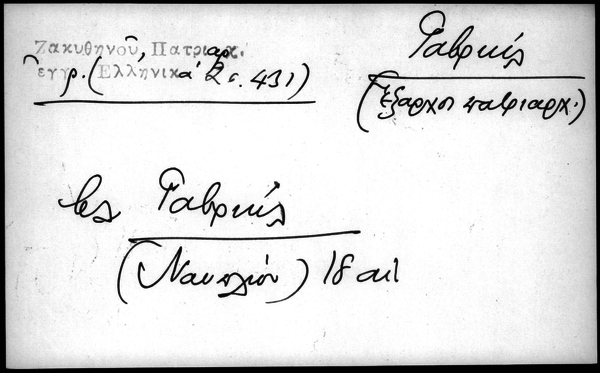 Ζακυθηνοῦ, Πατριαρχ.
ἔγγρ. (Ἑλληνικά 2 σ. 431)
Γαβριήλ
(Ἔξαρχοι πατριαρχ.)
βλ Γαβριήλ
(Ναυπλίου) 18 αἰ